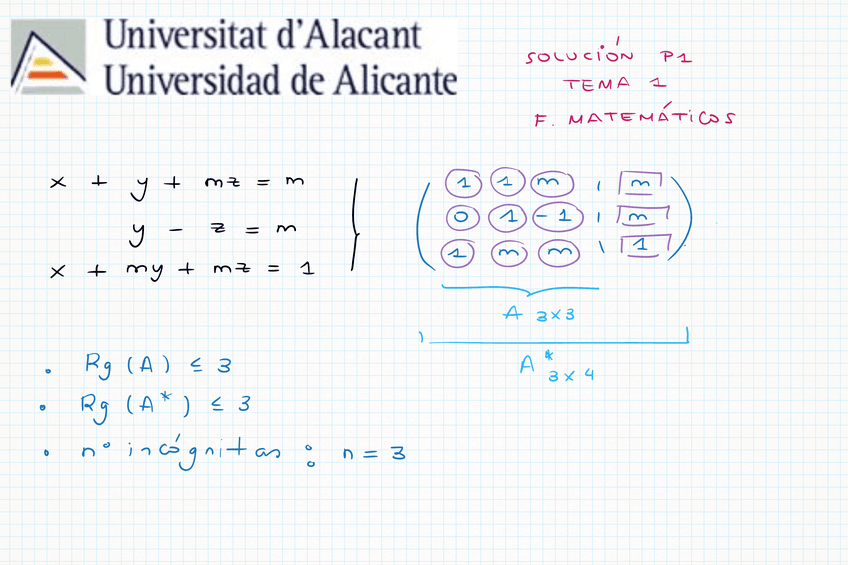 Universitat d'Alacant
Universidad de Alicante
SOLUCIÓN P1
TEMA 1
F. MATEMÁTICOS
x + y + mz = m
y - z = m
x + my + mz = 1
1 1 m | m
0 1 -1 | m
1 m m | 1
A 3x3
A* 3x4
• Rg (A) ≤ 3
• Rg (A*) ≤ 3
• nº incógnitas : n = 3